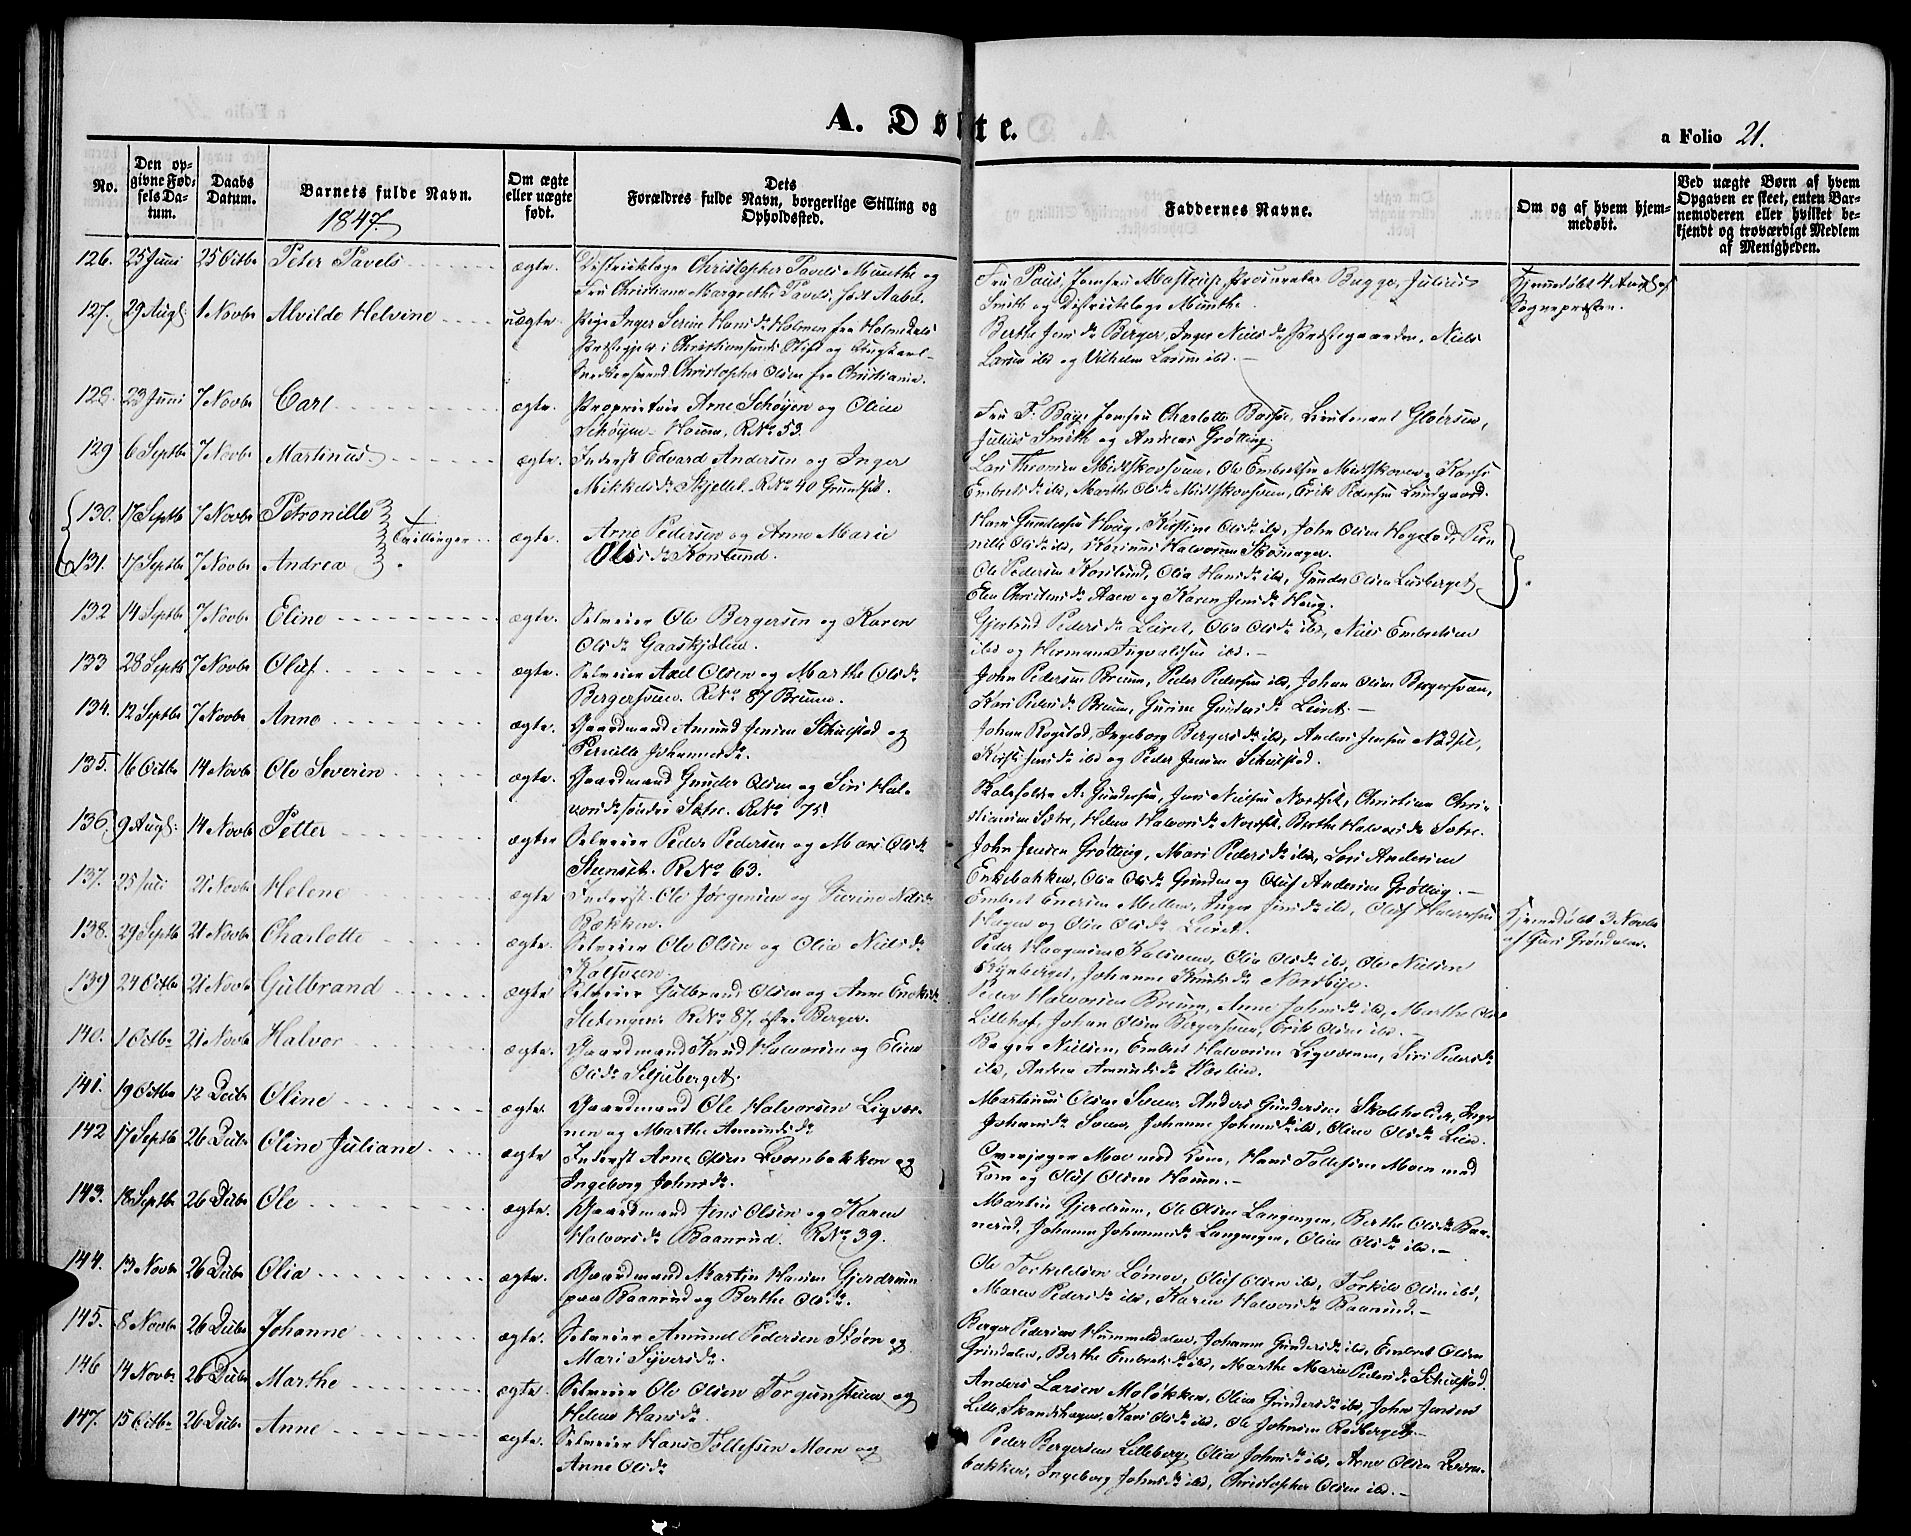 A. Døbte.
a Folio 21.
No.
Den opgivne Fødsels Datum.
Daabs Datum.
Barnets fulde Navn.
1847
Om ægte eller uægte født.
Dets Forældres fulde Navn, borgerlige Stilling og Opholdssted.
Faddernes Navne.
Om og af hvem hjemmedøbt.
Ved uægte Børn af hvem Opgaven er skeet, enten Barnemoderen eller hvilket bekjendt og troværdigt Medlem af Menigheden.
126. 25 Juni 25 Octbr Peter Pavels ægte. Districtslæge Christopher Pavels Munthe og
Fru Christiane Margrethe Pavels, født Aabel.
Fru Paus, Jomfru Procurator Bugge, Julius
Smith og Districtslæge Munthe.
Hjemmedøbt 4 Aug af
Sognepresten.
127. 29 Aug: 1 Novbr Alvilde Helvine uægte. Pige Inger Serine Hansdr Holmen fra Holmedals
Præstegjeld i Christiansands Stift og Ungkarl
Snedkersvend Christopher Olsen fra Christiania.
Berthe Jensdr Berger, Inger Nielsdr Præstegaarden, Niels
Larsen ibd og Vilhelm Larsen ibd.
128. 23 Juni 7 Novbr Carl ægte. Proprietair Arne Schøyen og Oline
Schøyen RNo 53.
Fru F. Charlotte Lieutenant Gløersen,
Julius Smith og Andreas Grøtting.
129 6 Septbr 7 Novbr Martinus ægte. Inderst Edvard Andersen og Inger
Mikkelsdr Skjellet. RNo 40 Grundset.
Lars Midtskovsveen, Ole Embretsen Midtskoven, Karen
Embretsdr ibd, Marthe Olsdr Midtskovsveen, Erik Pedersen Lundgaard.
130. 17 Septbr 7 Novbr Petronille Tvillinger ægte. Arne Pedersen og Anne Marie
Hans Gundersen Kirstine Olsdr ibd, John Olsen
131. 17 Septbr 7 Novbr Andrea Olsdr Korslund.
Ole Pedersen Korslund, Olia Hansdr ibd, Gunder Olsen
Elen Christensdr Aaen og Karen Jensdr Haug.
132 14 Septbr 7 Novbr Eline ægte. Selveier Ole Bergersen og Karen
Olsdr Gaaskjølen.
Gjertrud Pedersdr Leiret, Olia Olsdr ibd, Niels Embretsen
ibd og Herman Ingvaldsen ibd.
133 28 Septbr 7 Novbr Oluf ægte. Selveier Axel Olsen og Marthe Olsdr
Bergersveen. RNo 87 Brenna.
John Pedersen Peder Pedersen ibd, Johan Olsen Bergersveen,
Kari Pedersdr Gurine Gundersdr Leiret.
134. 12 Septbr 7 Novbr Anne ægte. Gaardmand Amund Jensen Schulstad og
Pernille Johannesdr.
Johan Rogstad, Ingeborg Bergersdr ibd, Anders Jensen
Jensdr ibd og Peder Jensen Schulstad.
135. 16 Octbr 14 Novbr Ole Severin ægte. Gaardmand Gunder Olsen og Siri Halvorsdr
søndre Sætre. RNo 75.
Skoleholder A. Gundersen, Jens Nielsen Nordset, Christian Christiansen
Sætre, Helene Halvorsdr Nordset, Berthe Halvorsdr Sætre.
136. 9 Aug: 14 Novbr Petter ægte Selveier Peder Pedersen og Mari Olsdr
Stenset. RNo 63.
John Jensen Grøtting, Mari Pedersdr ibd, Lars Andersen
Enkebakken, Olia Olsdr Grinden og Oluf Andersen Grøtting.
137. 25 Juli 21 Novbr Helene ægte Inderst Ole Jørgensen og
Bækken.
Embret Mellem, Inger Jensdr ibd, Oluf Halvorsen
Hagen og Olia Olsdr Leiret.
138. 29 Septbr 21 Novbr Charlotte ægte. Selveier Ole Olsen og Olia Nielsdr
Kalsveen.
Peder Haagensen Kalsveen, Olia Olsdr ibd, Ole Nielsen
Johanne Knudsdr Nordbye.
Hjemmedøbt 3 Novbr
af Guri Grøndalen.
139 24 Octbr 21 Novbr Gulbrand ægte Selveier Gulbrand Olsen og Anne
RNo 87, østre Berger.
Peder Halvorsen Anne Johnsdr ibd, Marthe
Lillehof, Johan Olsen Bergersveen, Erik Olsen ibd.
140. 1 Octbr 21 Novbr Halvor ægte. Gaardmand Knud Halvorsen og Eline
Olsdr Siljuberget.
Berger Nielsen, Embret Halvorsen Siri Pedersdr
ibd, Andrea Amundsdr
141. 19 Octbr 12 Decbr Oline ægte. Gaardmand Ole Halvorsen
og Marthe Amundsdr.
Martinus Olsen Sveen, Anders Gundersen Skoleholder, Inger
Johnsdr Sveen, Johanne Johnsdr ibd, Oline Olsdr
142 17 Septbr 26 Decbr Oline Juliane ægte Inderst Arne Olsen og
Ingeborg Johnsdr.
Overjæger Moe med Kone, Hans Tollefsen Moen med
Kone og Oluf Olsen
143. 18 Septbr 26 Decbr Ole ægte. Gaardmand Jens Olsen og Karen
Halvorsdr Baanrud. RNo 39.
Martin Gjerdrum, Ole Olsen Langengen, Berthe Olsdr Baanerud,
Johanne Johannesdr Langengen, Oline Olsdr ibd.
144. 13 Novbr 26 Decbr Olia ægte. Gaardmand Martin Hansen Gjerdrum
paa Baanrud og Berthe Olsdr.
Ole Torkildsen Lømoe, Oluf Olsen ibd, Torkild Olsen ibd,
Maren Pedersdr ibd, Karen Halvorsdr Baanrud.
145. 8 Novbr 26 Decbr Johanne ægte. Selveier Amund Pedersen Støen og
Mari Syversdr.
Berger Pedersen Hummeldalen, Johanne Gundersdr ibd, Embret Olsen
Grindalen, Berthe Embretsdr ibd, Marthe Marie Pedersdr Schulstad.
146 14 Novbr 26 Decbr Marthe ægte Selveier Ole Olsen Torgunsteien og
Helene Hansdr.
Anders Larsen Moløkken, Oline Gundersdr ibd, John Jensen
Lille Skandshagen, Kari Olsdr ibd, Ole Johnsen Rødberget.
147. 15 Octbr 26 Decbr Anne ægte. Selveier Hans Tollefsen Moen og
Anne Olsdr
Peder Bergersen Lilleberg, Olia Johnsdr ibd, Arne Olsen
Ingeborg Johnsdr ibd, Christopher Olsen ibd.